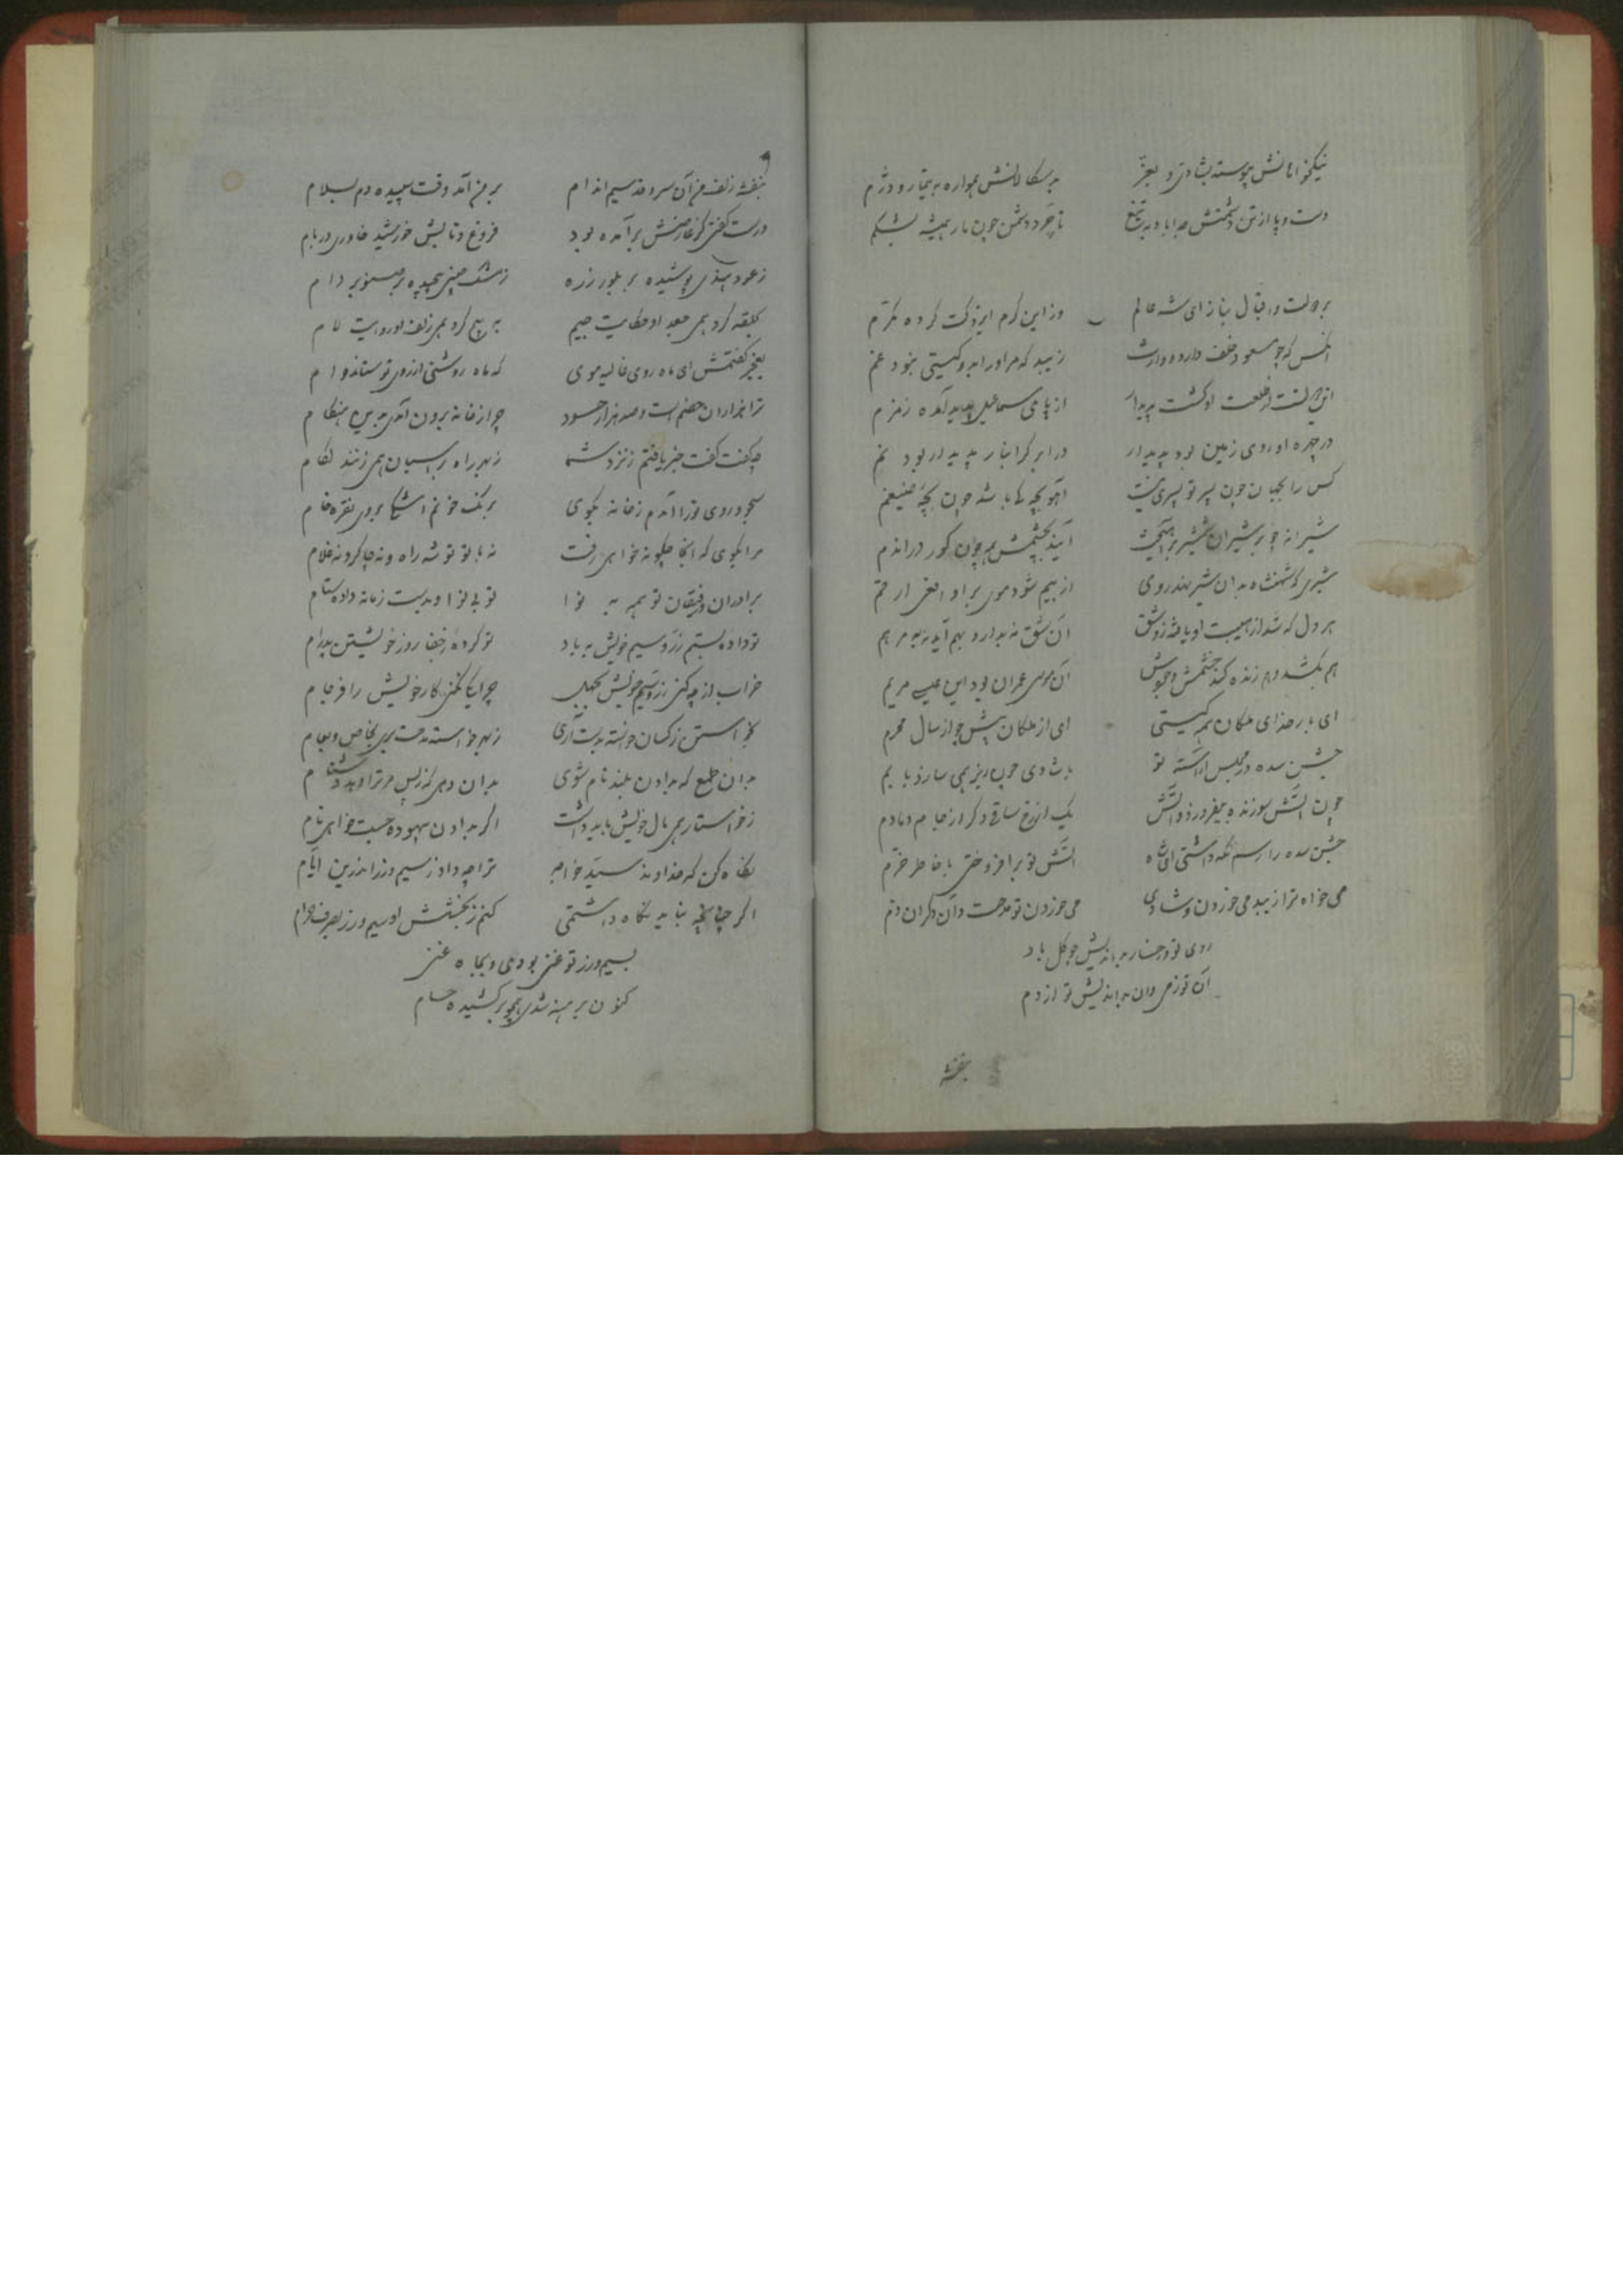 نیکخواهانش پیوسته بشادی و بعز بدسکالانش همواره به تیمار و دژم
دست و پا از تن دشمنش جدا باد به تیغ تا چو دشمن چون مار همیشه بشکم
بدولت و اقبال بناز ای شه عالم وز این کرم ایزدکت کرده مکرم
آنکس که چو مسعود خلف دارد و وارث زیبد که مر او را نبود گیتی بخود غم
از طلعت او گشت پدیدار از پای سماعیل پدید آمده زمزم
در چهره او روی زمین بود پدیدار در ابر گرانبار پدیدار بود نم
کس را بجهان چون پسر تو پسری نیست آهو بچه کی باشد چون بچه ضیغم
شیرانه چو بر شیران شمشیر بر آهیخت آیند بچشمش همه چون کور در اندم
شیری که شهنشاه بدان شیر نهد روی از بیم شود موی بر او افعی ارقم
هر دل که شد از هیبت او یافته زو شق آن شق نه بدارو بهم آید نه به مرهم
هم بکشد و هم زنده کند خشمش و جودش آن موسی عمران بود این عیسی مریم
ای بار خدای ملکان همه گیتی ای از ملکان پیش چو از سال محرم
جشن سده در مجلس آراسته تو با شادی چون زیر همی سازد با بم
چون آتش سوزنده بیفروز دو آتش یک از رخ ساقی دگر از جام دمادم
جشن سده را رسم نگه داشتی ای شاه آتش تو برافروختی با خاطر خرم
می خواه ترا زیبد می خوردن و شادی می خوردن تو مدحت و آن دگران دم
روی تو و رخسار بداندیش چو گل باد
آن تو ز می وان بداندیش تو از دم
بنفشه
بنفشه زلف من آن سرو قد سیم اندام بر من آمد وقت سپیده دم بسلام
درست گفتی کز عارضش برآمده بود فروغ و تابش خورشید خاوری در بام
ز عود هندی پوشیده بر بلور زره ز مشک چینی پیچیده بر صنوبر دام
بحلقه کرده همی جعد او حکایت جیم به پیچ کرده همی زلف او روایت لام
بفخر گفتمش ای ماه روی غالیه موی که ماه روشنی از روی تو ستاند وام
ترا هزاران خصم است و صد هزار حسود چو از خانه برون آمدی بدین هنگام
چه گفت گفت خبر یافتم ز نزد شما ز بهر راه بر اسبان همی زنند لگام
بجو و روی فرا آمدم ز خانه بکوی برنگ خونم اشک بروی نقره خام
مرا بگوی که آنجا چگونه خواهی رفت نه با تو توشه راه و نه چاکر و نه غلام
برادران و رفیقان تو همه به نوا تو بی نوا و بدست زمانه داده ستام
تو داده بستم زر و سیم خویش به باد تو کرده ز جفا روز خویشتن پدرام
خراب از چه کنی زر و سیم خویش بجهل چرا نگه نکنی کار خویش را فرجام
بخواستن ز کسان خواسته بدست آری ز بهر خواسته مدحت بری بخاص و بعام
بدان طمع که بدادن بلند نام شوی بدان دهی که ز پس مر ترا دهد دشنام
ز خواستار همی مال خویش باید داشت اگر بدادن بیهوده جست خواهی نام
نگاه کن که خداوند سید خواجه ترا چه داد ز سیم و زر اندرین ایام
اگر چنانچه بباید نگاه داشتمی کنم ز بخشش او سیم و زر بصرف حرام
بسیم و زر تو غنی بودی و بجاه غنی
کنون برهنه شدی همچو برکشیده حسام